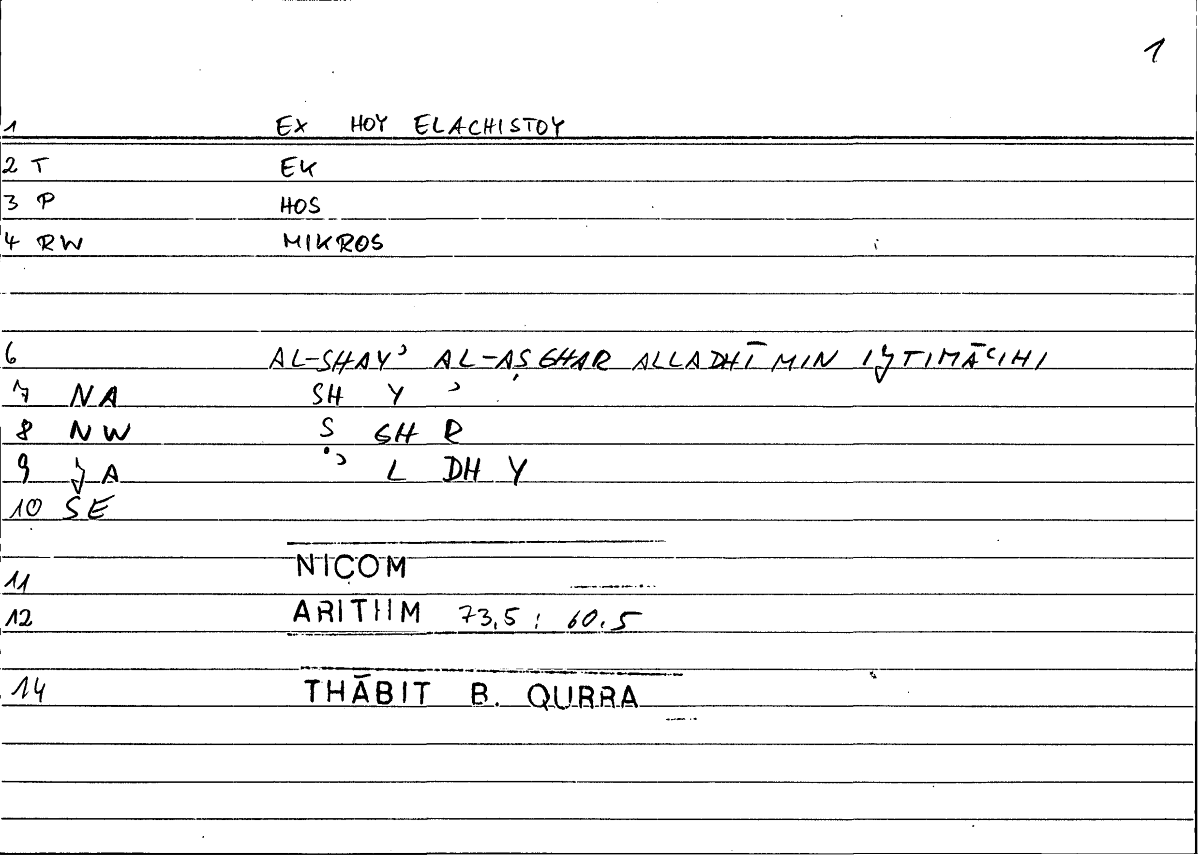 1
1 EX HOY ELACHISTOY
2 T EK
3 P HOS
4 RW MIKROS
6 AL-SHAYʾ AL-AṢGHAR ALLADHĪ MIN IJTIMĀʿIHI
7 NA SH Y ʾ
8 NW Ṣ GH R
9 JA ʾ L DH Y
10 SE
11 NICOM
12 ARITHM 73,5 : 60.5
14 THĀBIT B. QURRA